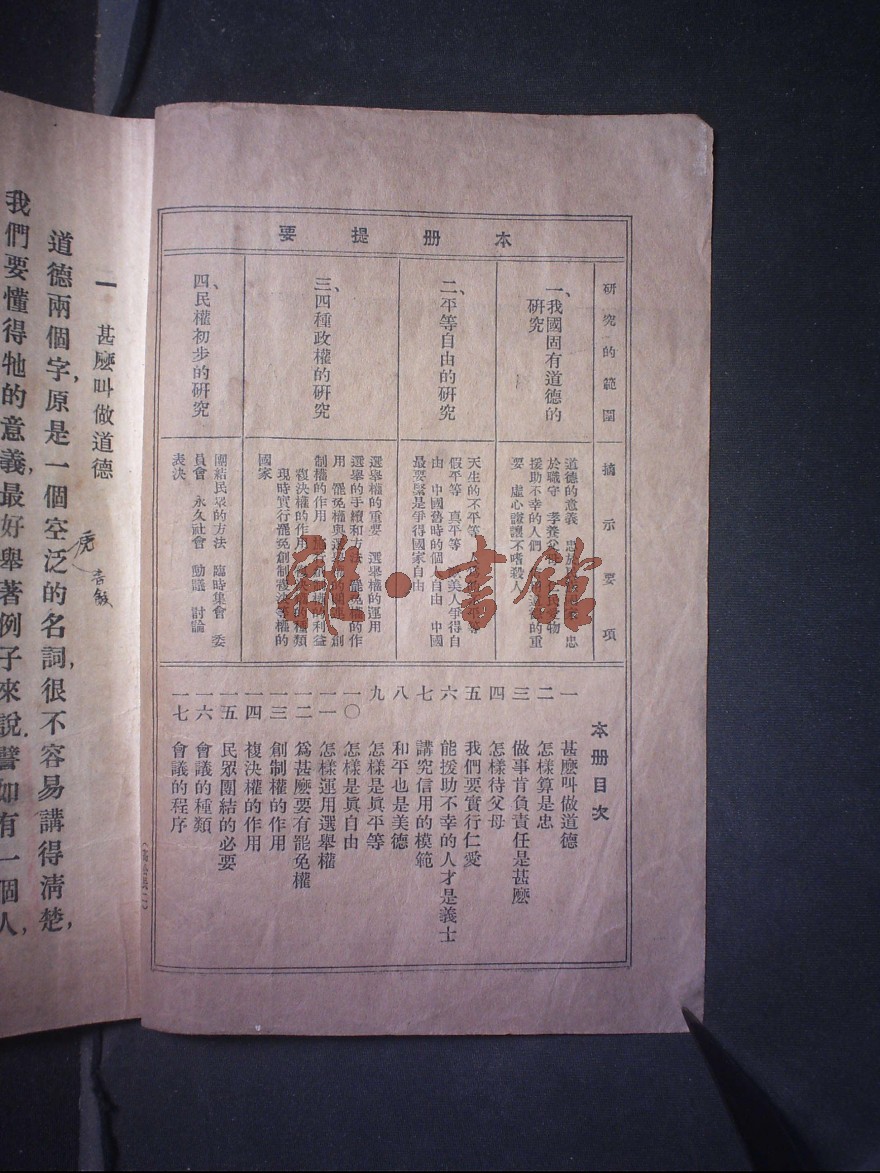 本册提要
研究的範圍
摘示要項
一、我國固有道德的
研究
道德的意義 忠於
忠
於職守 孝養父
物
援助不幸的人們
的重
要 虛心謙讓不嗜殺人
二、平等自由的研究
天生的不平等
等
假平等 真平等
美人爭得自
由 中國舊時的個人自由 中國
最要緊是爭得國家自由
三、四種政權的研究
選舉權的重要 選舉權的運用
選舉的手續和方法 罷免權的作
用 罷免權與選舉權的關係 創
制權的作用
的利益
複決權的作用
的種類
現時實行罷免創制複決等權的
國家
四、民權初步的研究
團結民眾的方法 臨時集會 委
員會 永久社會 動議 討論
表決
本册目次
一 甚麼叫做道德
二 怎樣算是忠
三 做事肯負責任是甚麼
四 怎樣待父母
五 我們要實行仁愛
六 能援助不幸的人才是義士
七 講究信用的模範
八 和平也是美德
九 怎樣是眞平等
一〇 怎樣是眞自由
一一 怎樣運用選舉權
一二 爲甚麼要有罷免權
一三 創制權的作用
一四 複決權的作用
一五 民眾團結的必要
一六 會議的種類
一七 會議的程序
一 甚麼叫做道德
道德兩個字,原是一個空泛的名詞,很不容易講得清楚,
我們要懂得牠的意義,最好舉著例子來說.譬如有一個人,
雜·書館